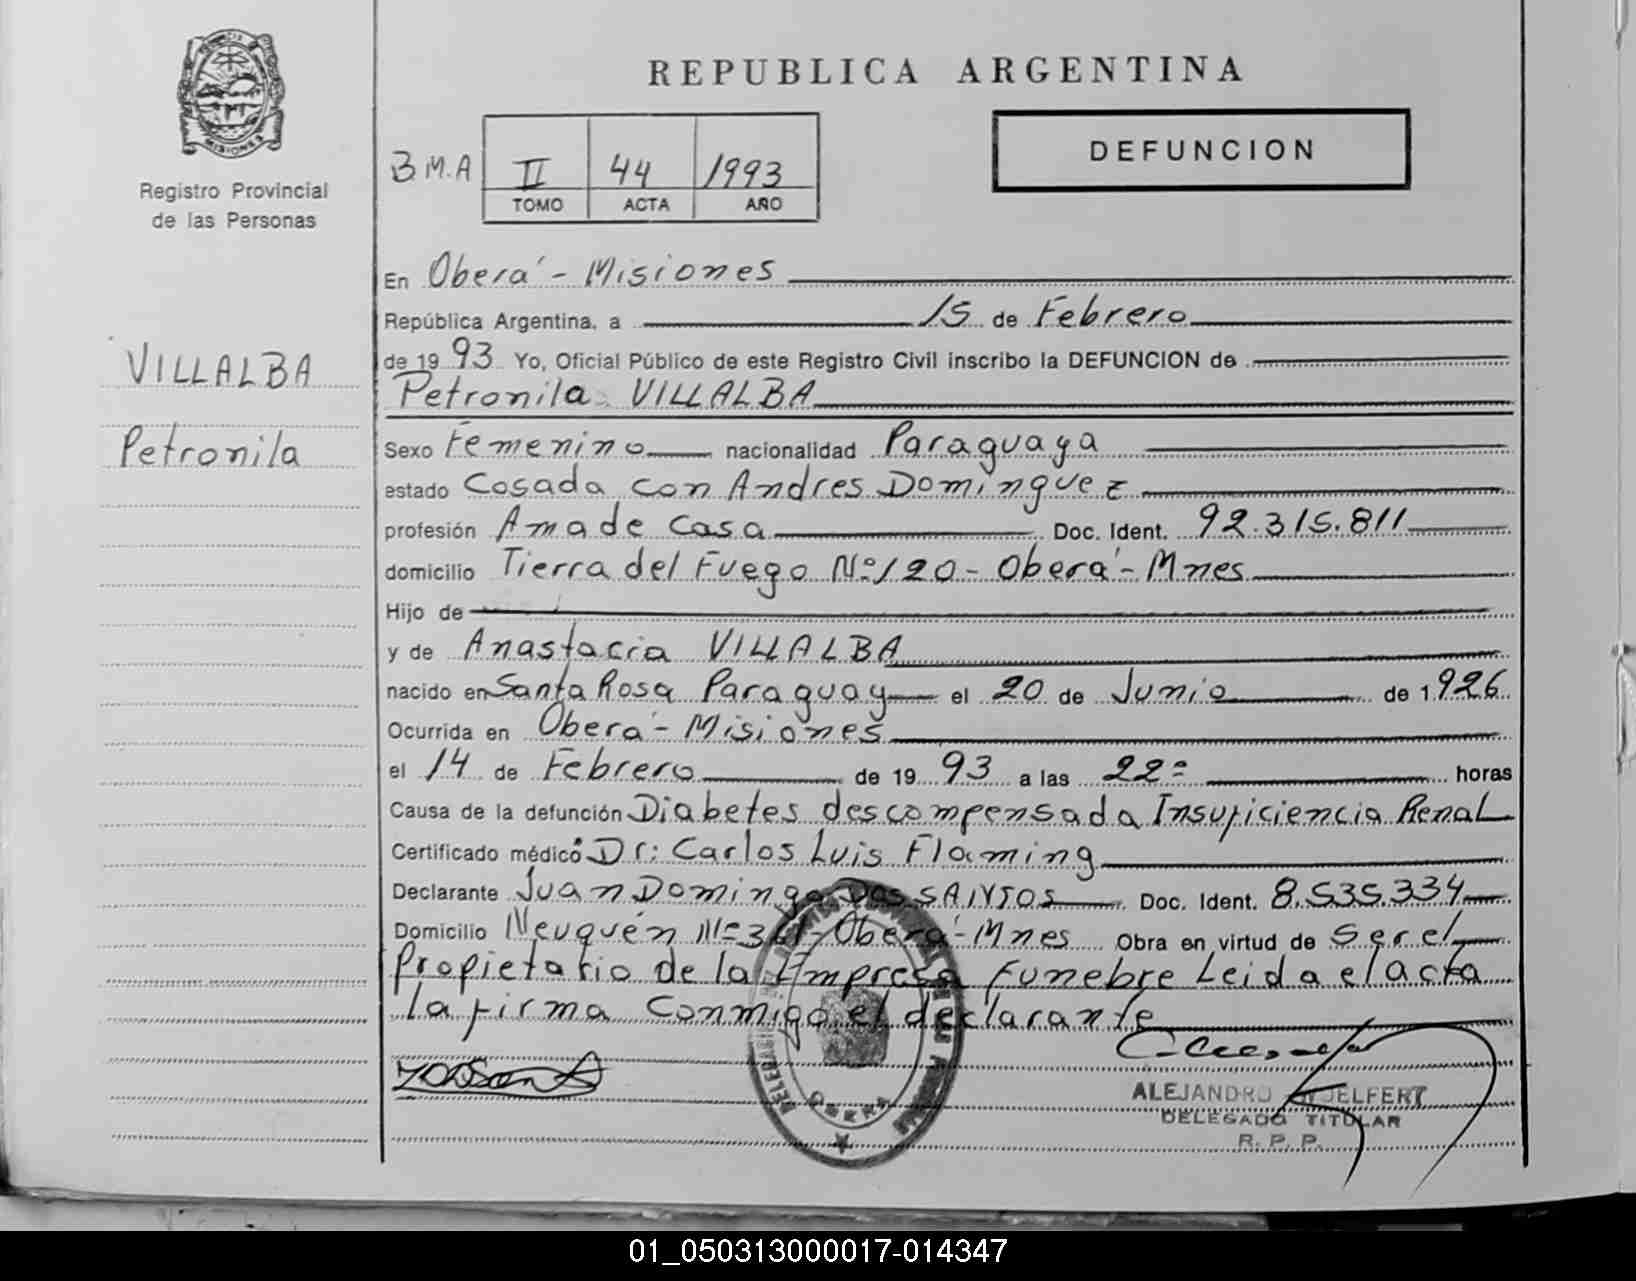 REPUBLICA ARGENTINA
MISIONES
Registro Provincial
de las Personas
B.M.A
II 44 1993
TOMO ACTA AÑO
DEFUNCION
VILLALBA
Petronila
En Oberá - Misiones
República Argentina, a 15 de Febrero
de 19 93 Yo, Oficial Público de este Registro Civil inscribo la DEFUNCION de
Petronila VILLALBA
Sexo Femenino nacionalidad Paraguaya
estado Casada con Andres Dominguez
profesión Ama de Casa Doc. Ident. 92.315.811
domicilio Tierra del Fuego Nº 120 - Oberá - Mnes
Hijo de
y de Anastacia VILLALBA
nacido en Santa Rosa Paraguay el 20 de Junio de 1.926
Ocurrida en Oberá - Misiones
el 14 de Febrero de 19 93 a las 22= horas
Causa de la defunción Diabetes descompensada Insuficiencia Renal
Certificado médico Dr: Carlos Luis Flaming
Declarante Juan Domingo Dos SANTOS Doc. Ident. 8.535.334
Domicilio Neuquén Nº - Oberá - Mnes Obra en virtud de Ser el
Propietario de la Empresa Funebre Leida el acta
la firma conmigo el declarante
OBERA
ALEJANDRO
DELEGADO TITULAR
R. P. P.
01_050313000017-014347